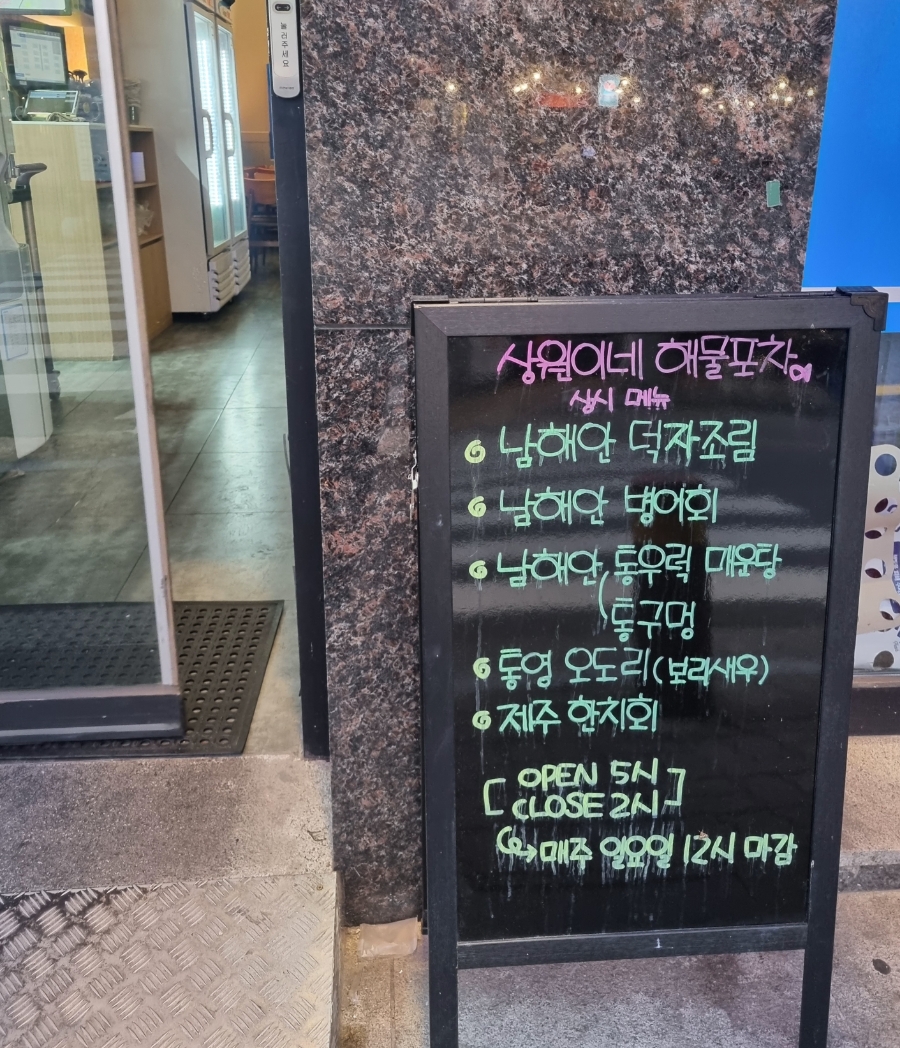 눌러주세요
상원이네 해물포차
상시 메뉴
남해안 덕자조림
남해안 병어회
남해안 통우럭 매운탕
통구멍
통영 오도리(보리새우)
제주 한치회
OPEN 5시
CLOSE 2시
매주 일요일 12시 마감